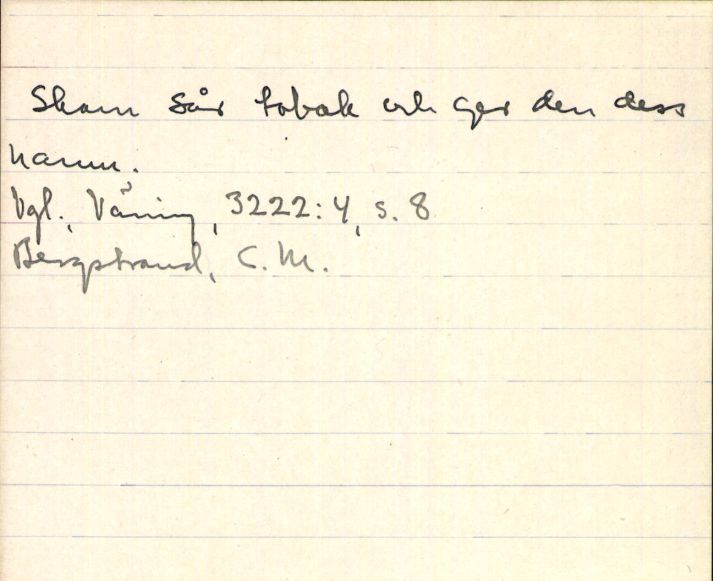 Skam sår tobak och ger den dess
namn.
Vgl., Våning, 3222:4, s. 8
Bergstrand, C.M.